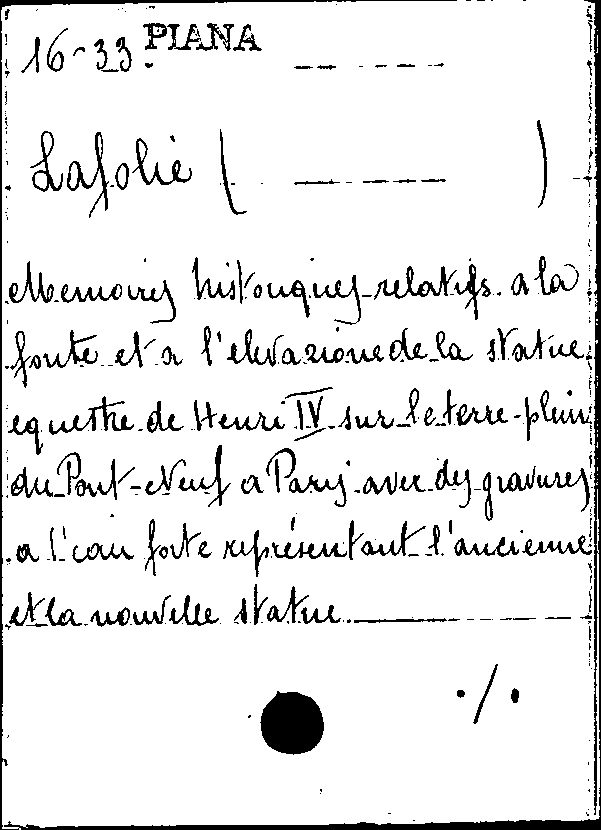 16-33. PIANA
Lafolie ( )
Memoires historiques relatifs a la
fonte et a l'elevazione de la statue
equestre de Henri IV sur le terre-plein
du Pont-Neuf a Paris avec des gravures
a l'eau forte représentant l'ancienne
et la nouvelle statue
./.